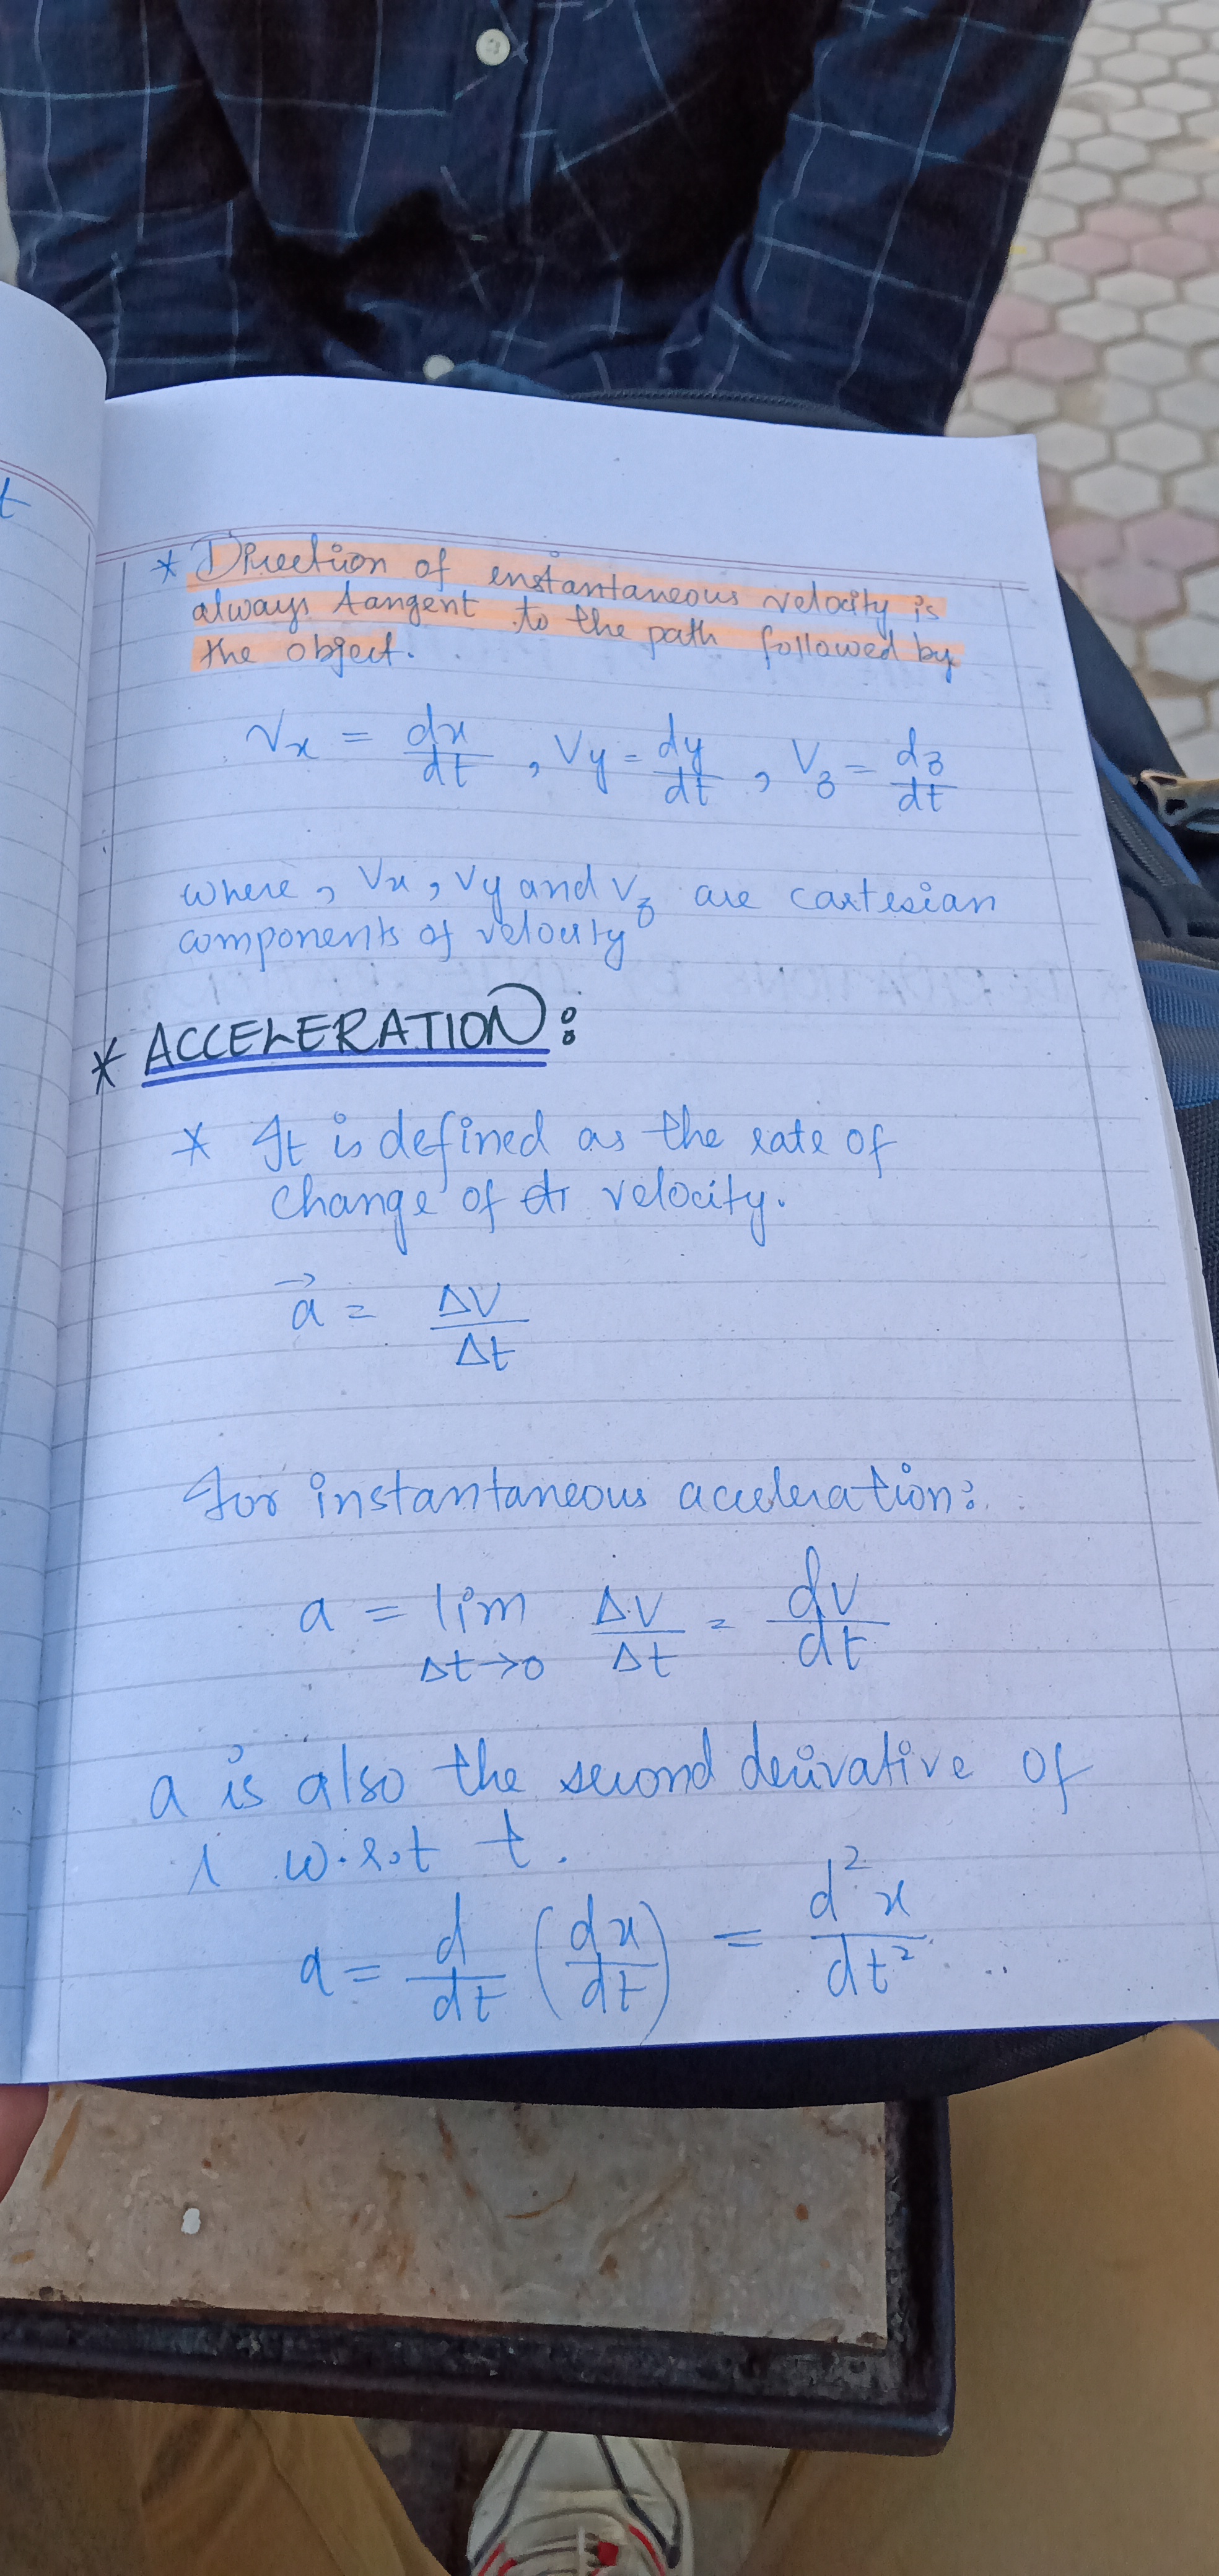 t
* Direction of instantaneous velocity is
always tangent to the path followed by
the object.
Vx = dx/dt , Vy = dy/dt , Vz = dz/dt
where, Vx, Vy and Vz are cartesian
components of velocity
* ACCELERATION:
* It is defined as the rate of
change of velocity.
a⃗ = ΔV/Δt
for instantaneous acceleration:
a = lim Δt→0 ΔV/Δt = dv/dt
a is also the second derivative of
w.r.t t.
a = d/dt (dx/dt) = d²x/dt²